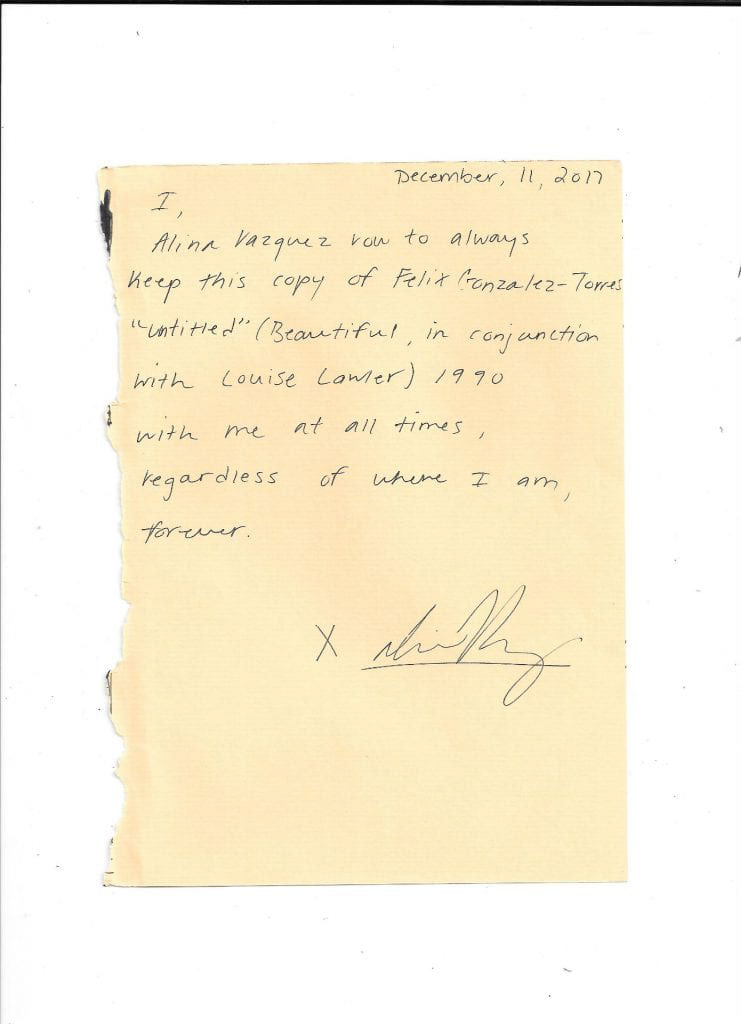 December, 11, 2017
I,
Alina Vazquez vow to always
keep this copy of Felix Gonzalez-Torres
"Untitled" (Beautiful, in conjunction
with Louise Lawler) 1990
with me at all times,
regardless of where I am,
forever.
X